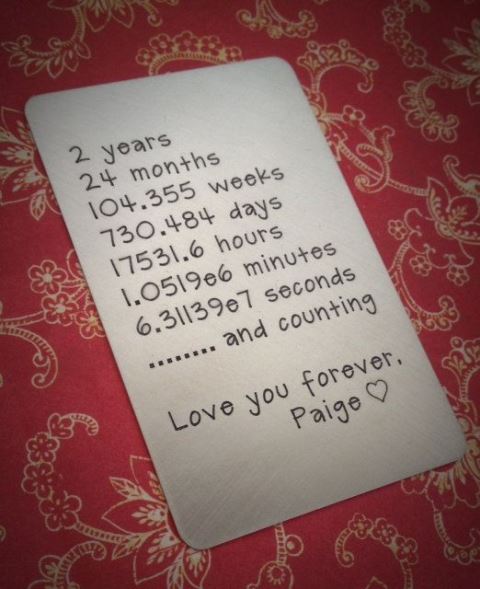 2 years
24 months
104.355 weeks
730.484 days
17531.6 hours
1.0519e6 minutes
6.31139e7 seconds
........ and counting
Love you forever,
Paige ♡